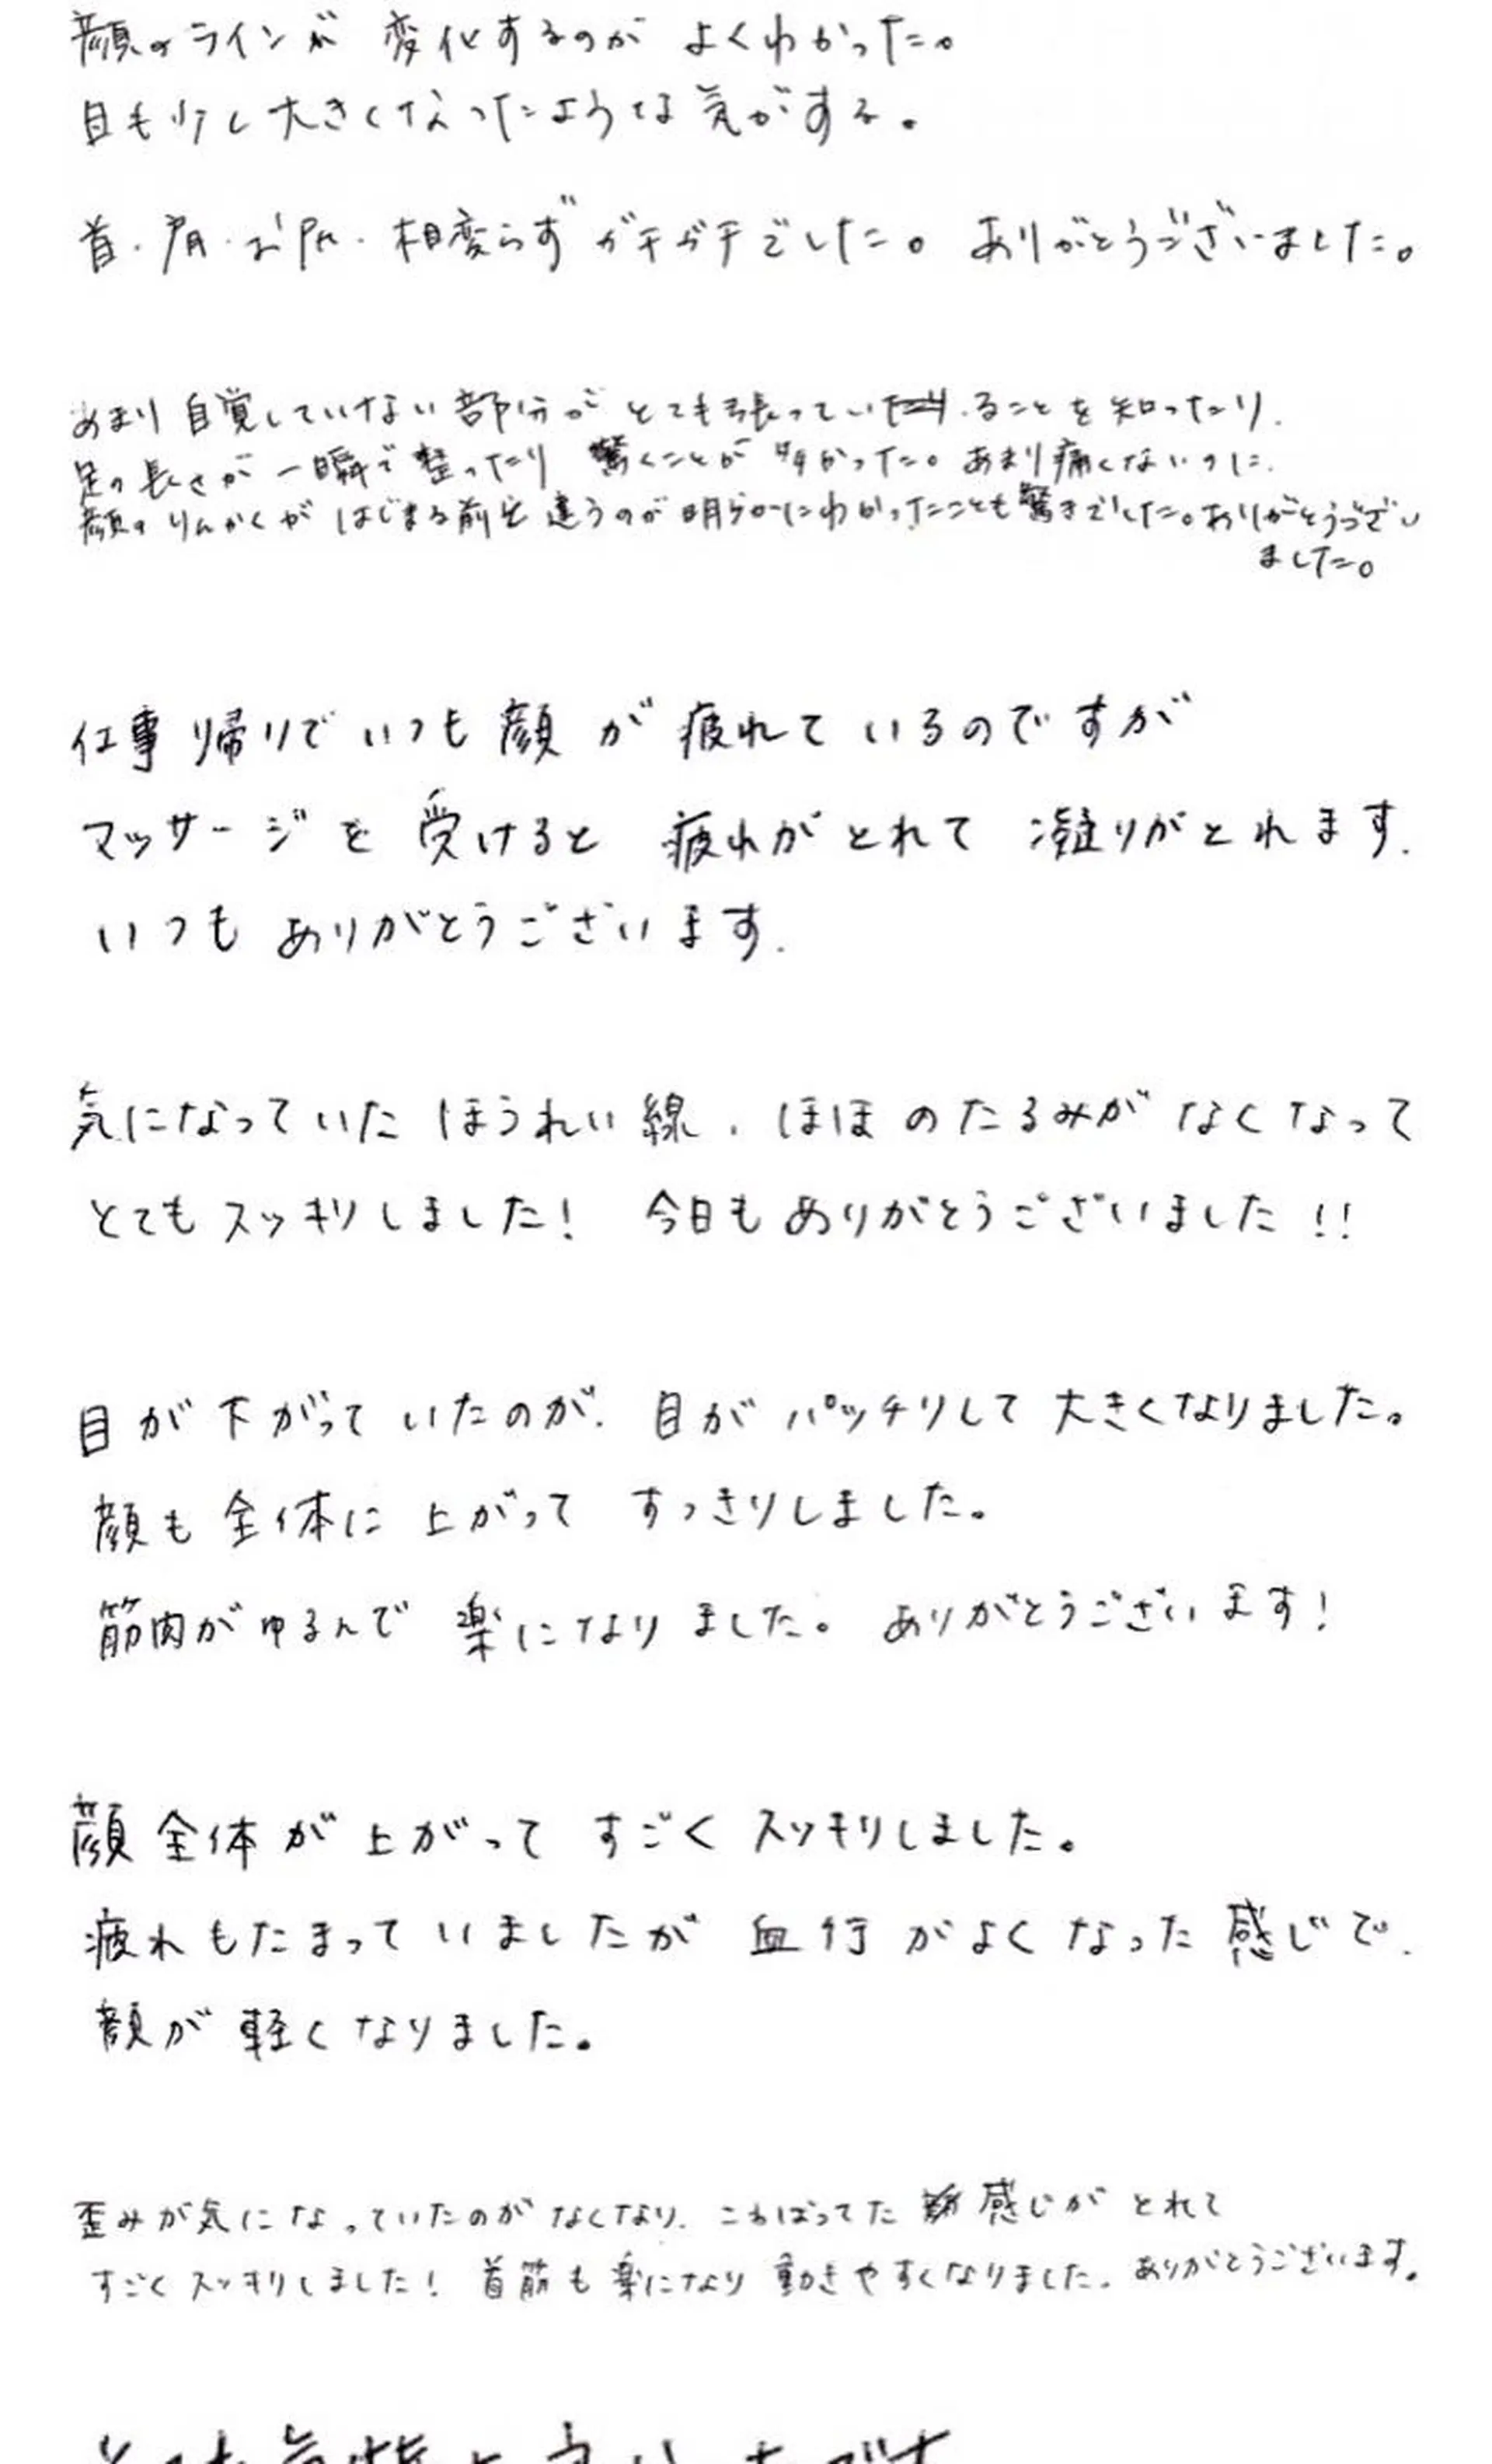 顔のラインが 変化するのが よくわかった。
目も少し大きくなったような気がする。
首・肩・お尻・相変らずガチガチでした。 ありがとうございました。
あまり自覚していない部分がとても張っていることを知ったり、
足の長さが一瞬で整ったり 驚くことが多かった。あまり痛くないのに、
顔のりんかくがはじまる前と違うのが明らかにわかったことも驚きでした。ありがとうござい
ました。
仕事帰りでいつも顔が疲れているのですが
マッサージを受けると 疲れがとれて 凝りがとれます.
いつも ありがとうございます.
気になっていた ほうれい線、ほほのたるみが なくなって
とてもスッキリしました! 今日もありがとうございました!!
目が下がっていたのが、目がパッチリして大きくなりました。
顔も全体に上がって すっきりしました。
筋肉がゆるんで 楽になりました。 ありがとうございます!
顔全体が上がって すごくスッキリしました。
疲れもたまっていましたが 血行がよくなった感じで、
顔が軽くなりました。
歪みが気になっていたのがなくなり、こわばってた 感じがとれて
すごくスッキリしました! 首筋も楽になり動きやすくなりました。ありがとうございます。